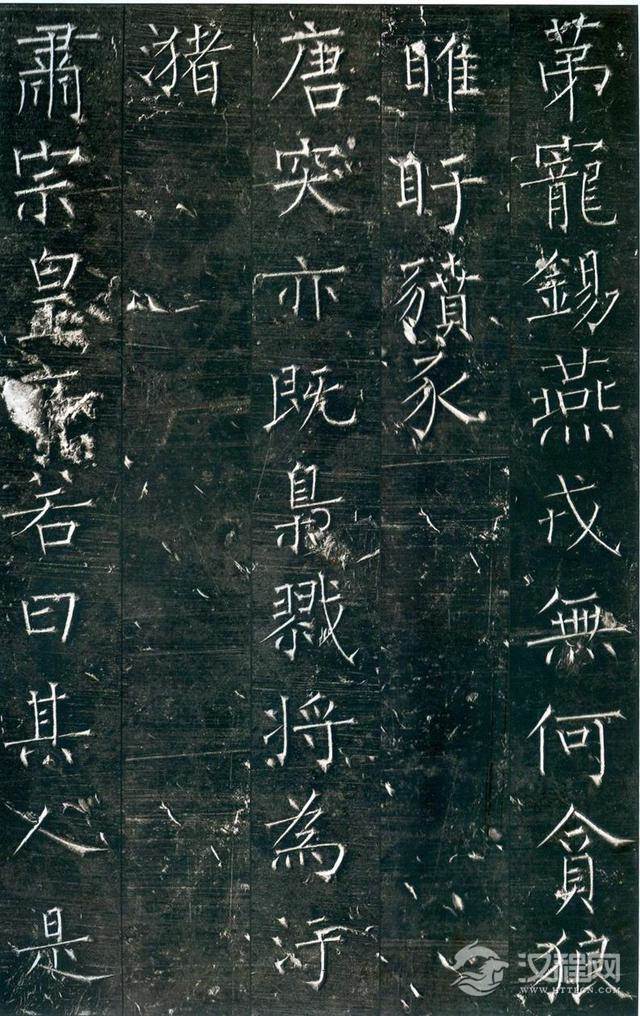 苐寵錫燕戎無何貪狼
睢盱豶豕
唐突亦既梟戮將為汙
潴
肅宗皇帝若曰其人是
汉程网
WWW.HTTPCN.COM